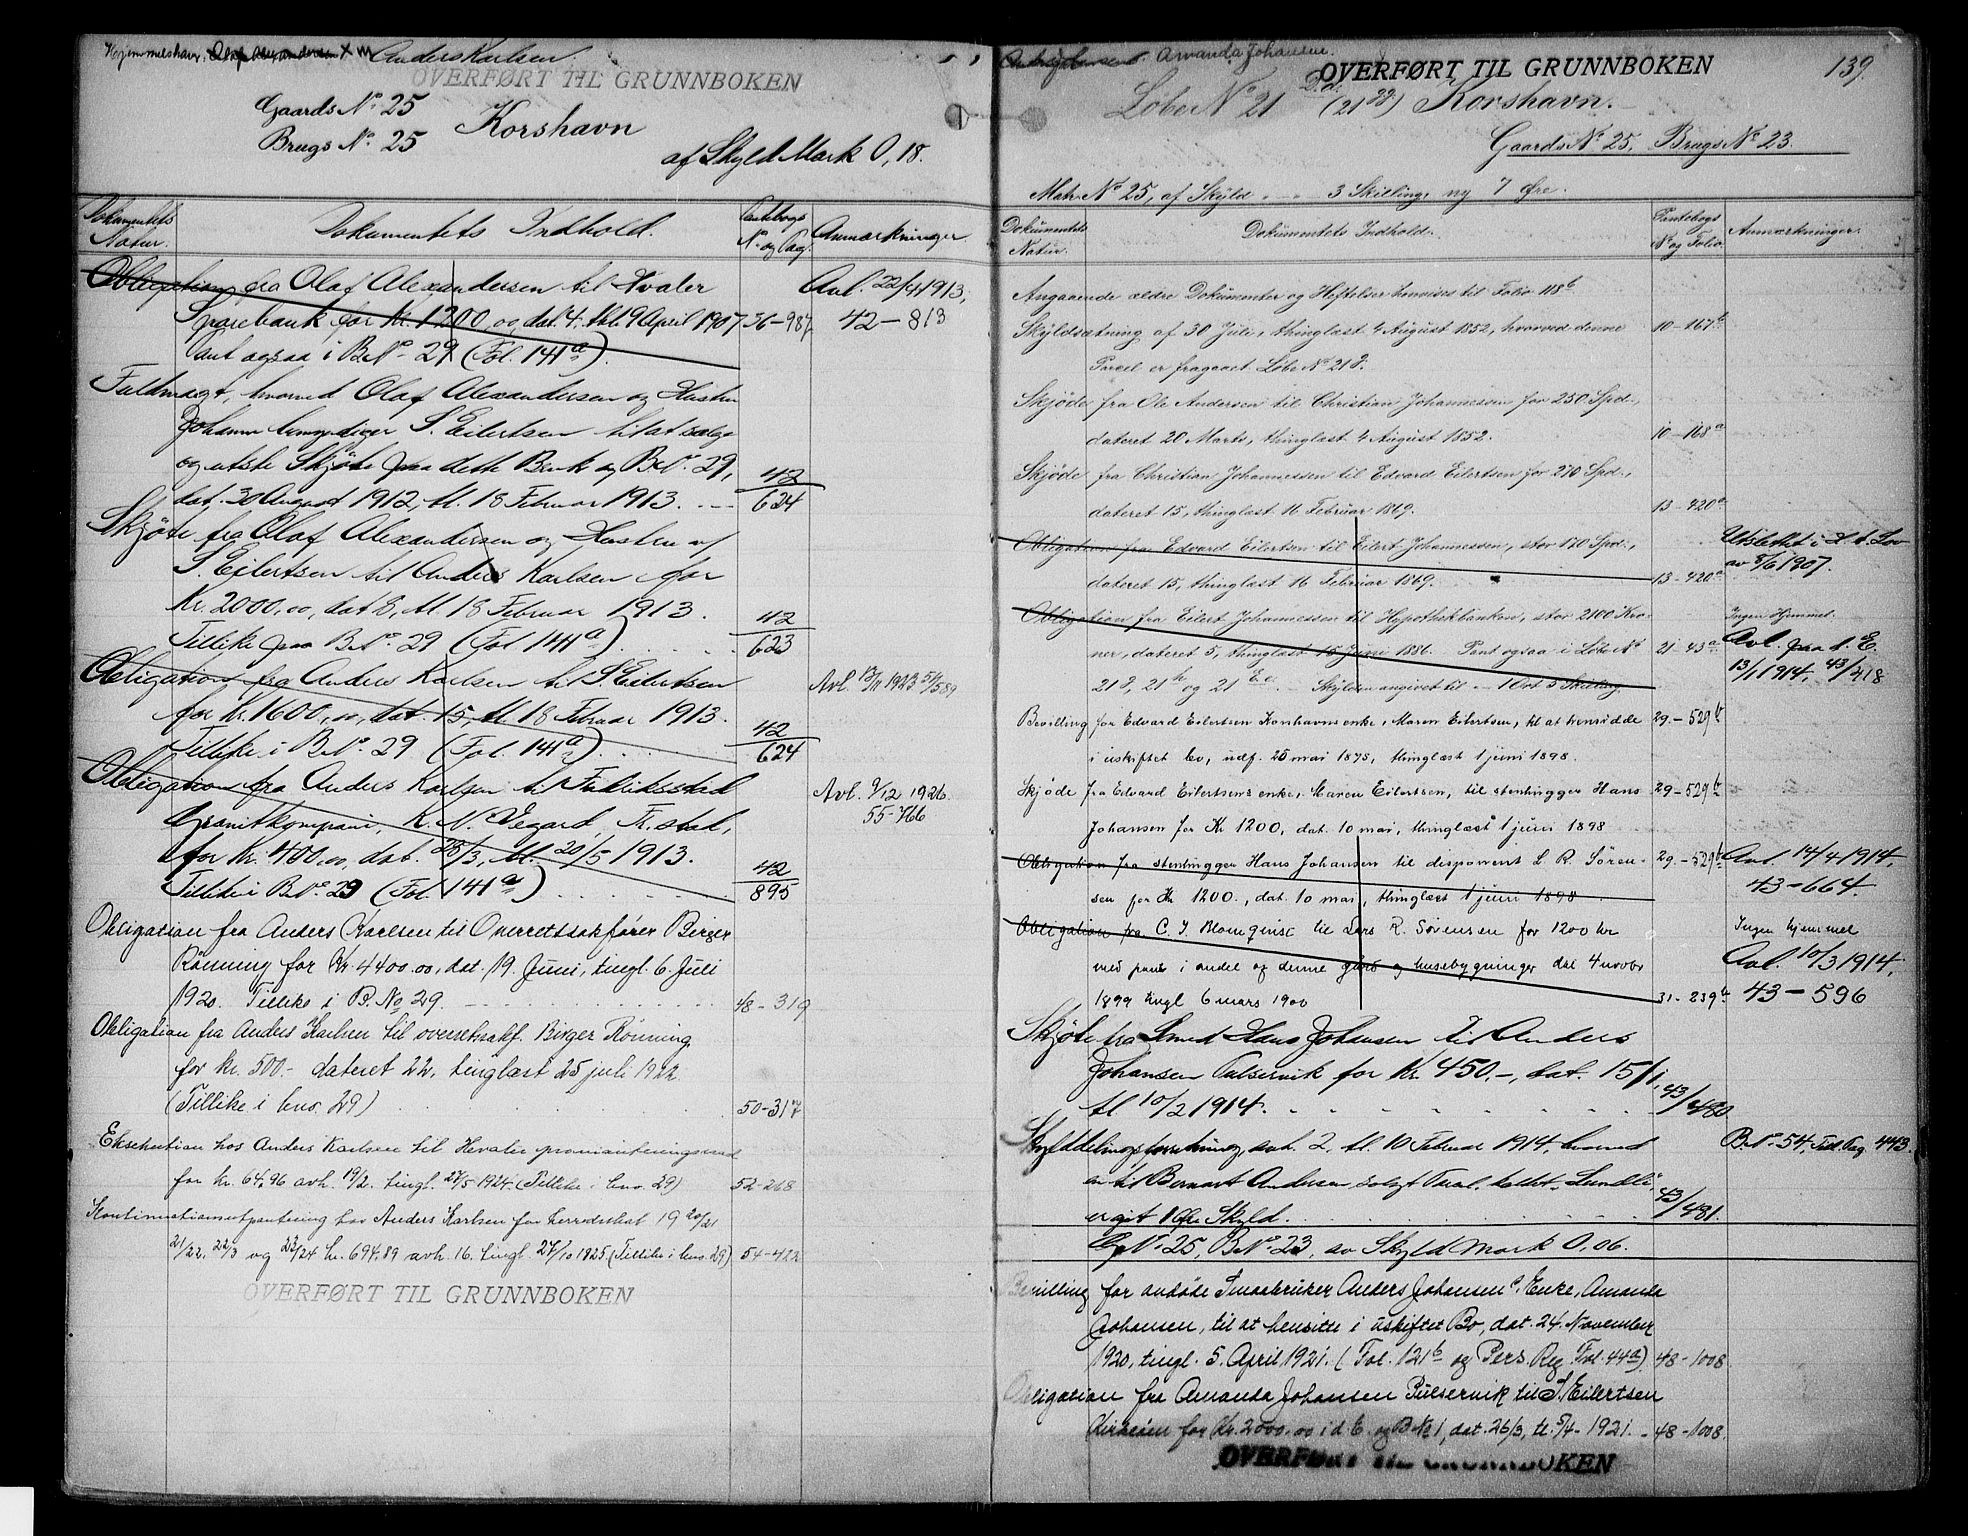 Hjemmelshav. Olaf Alexandersen x m Anders Karlsen.
OVERFØRT TIL GRUNNBOKEN
Gaards No 25
Brugs No 25
Korshavn
af Skyld Mark 0,18.
Dokumentets Natur.
Dokumentets Indhold.
Pantebogs No og Pag.
Anmærkninger
Obligation fra Olaf Alexandersen til Hvaler
Sparebank for Kr. 1200,00, dat. 4, thl. 9 April 1907. 36-987
Pant ogsaa i B.No 29 (Fol. 141a).
Avl. 22/4 1913,
42-813
Fuldmagt, hvorved Olaf Alexandersen og Hustru
Johanne bemyndiger S. Eilertsen til at sælge
og utste Skjøte paa dette Bruk og B.No 29,
dat. 30 August 1912, tl. 18 Februar 1913. 42/624
Skjøte fra Olaf Alexandersen og Hustru v/
S. Eilertsen til Anders Karlsen for
Kr. 2000,00, dat. 8, tl. 18 Februar 1913.
Tillike paa B.No 29 (Fol 141a) 42/623
Obligation fra Anders Karlsen til S. Eilertsen
for Kr. 1600,00, dat. 15, tl. 18 Februar 1913.
Tillike i B.No 29 (Fol. 141a) 42/624
Avl. 13/11 1923 51/589
Obligation fra Anders Karlsen til Fredriksstad
Granitkompani, K. N. Vegard, Fr.stad,
for Kr. 400,00, dat. 28/3, tl. 20/5 1913.
Tillike i B.No 29 (Fol. 141a) 42/895
Avl. 9/12 1926
55-766
Obligation fra Anders Karlsen til Overretssakfører Birger
Rönning for Kr. 4400.00, dat. 19. Juni, tingl. 6. Juli
1920. Tillike i B. No, 29. 48-319
Obligation fra Anders Karlsen til overretssakf. Birger Rönning
for kr. 500.- dateret 22, tinglæst 25 juli 1922
(Tillike i bno. 29) 50-317
Eksekution hos Anders Karlsen til Hvaler provianteringsraad
for kr. 64.96 avh. 19/2. tingl. 27/5 1924. (Tillike i bno. 29) 52-268
Kontinuationsutpantning hos Anders Karlsen for herredsskat 1920/21
21/22, 22/3 og 23/24 kr. 694.89 avh. 16. tingl. 27/10 1925 (Tillike i bno. 29) 54-423
OVERFØRT TIL GRUNNBOKEN
Amanda Johansen.
OVERFØRT TIL GRUNNBOKEN
139.
Løbe No 21 D.d. (21 gg.) Korshavn.
Gaards No 25, Brugs No 23.
Matr No 25, af Skyld 3 Skilling, ny 7 Øre.
Dokumentets Natur.
Dokumentets Indhold.
Pantebogs No og Folio
Anmærkninger.
Angaaende ældre Dokumenter og Heftelser henvises til Folio 118b
Skyldsætning af 30 Juli, thinglæst 4 August 1852, hvorved denne 10-167b
Parcel er fragaaet Løbe No 21 g.
Skjøde fra Ole Andersen til Christian Johannessen for 250 Spd.,
dateret 20 Marts, thinglæst 4 August 1852. 10-168a
Skjøde fra Christian Johannessen til Edvard Eilertsen for 270 Spd.,
dateret 15, thinglæst 16 Februar 1869. 13-420a
Obligation fra Edvard Eilertsen til Eilert Johannessen, stor 170 Spd.,
dateret 15, thinglæst 16 Februar 1869. 13-420a
Utslettet i H. t. Lov
av 8/6 1907.
Obligation fra Eilert Johannessen til Hypothekbanken, stor 2100 Kro-
ner, dateret 5, thinglæst 15 Juni 1886. Pant ogsaa i Løbe No 21-43a
21 g, 21 h og 21 E.e. Skylden angivet til 1 Ort 5 Skilling.
Ingen Hjemmel.
Avl. paa d. E.
13/1 1914, 43/418
Bevilling for Edvard Eilertsen Korshavns enke, Maren Eilertsen, til at hensidde 29.-529b
i uskiftet bo, udf. 25 mai 1875, thinglæst 1 juni 1898.
Skjøde fra Edvard Eilertsens enke, Maren Eilertsen, til stenhugger Hans 29-529b
Johansen for Kr 1200, dat. 10 mai, thinglæst 1 juni 1898
Obligation fra stenhugger Hans Johansen til disponent L. R. Sören- 29.-529b
sen for Kr 1200., dat. 10 mai, thinglæst 1 juni 1898.
Avl. 14/4 1914,
43-664.
Obligation fra C. J. Blomqvist til Lars R. Sörensen for 1200 kr
med pant i andel og denne gård og husebygninger dat 4 novbr
1899 tingl 6 mars 1900 31-239b
Ingen hjemmel
Avl. 10/3 1914,
43-596
Skjøte fra Smed Hans Johansen til Anders
Johansen Pulservik for Kr. 450,-, dat. 15/1,
tl 10/2 1914. 43/480
Skylddelingsforretning, avh. 2, tl. 10 Februar 1914, hvorved
en til Bernart Andersen solgt Parcel kaldet „Lundli"
er git 1 Øre Skyld. 43/481.
B.No 54, Fol. Pag 443.
G.No 25, B.No 23, av Skyld mark 0,06.
Bevilling for avdöde Smaabruker Anders Johansens Enke, Amanda
Johansen, til at hensitte i uskiftet Bo, dat. 24. November
1920, tingl. 5. April 1921. (Fol. 121b og Pers. Reg. Fol. 44a) 48-1008
Obligation fra Amanda Johansen Pulservik til S. Eilertsen
Kirköen for Kr. 2000.00 i d. E. og B No 1, dat. 26/3, tl. 5/4-1921. -48-1008.
OVERFØRT TIL GRUNNBOKEN